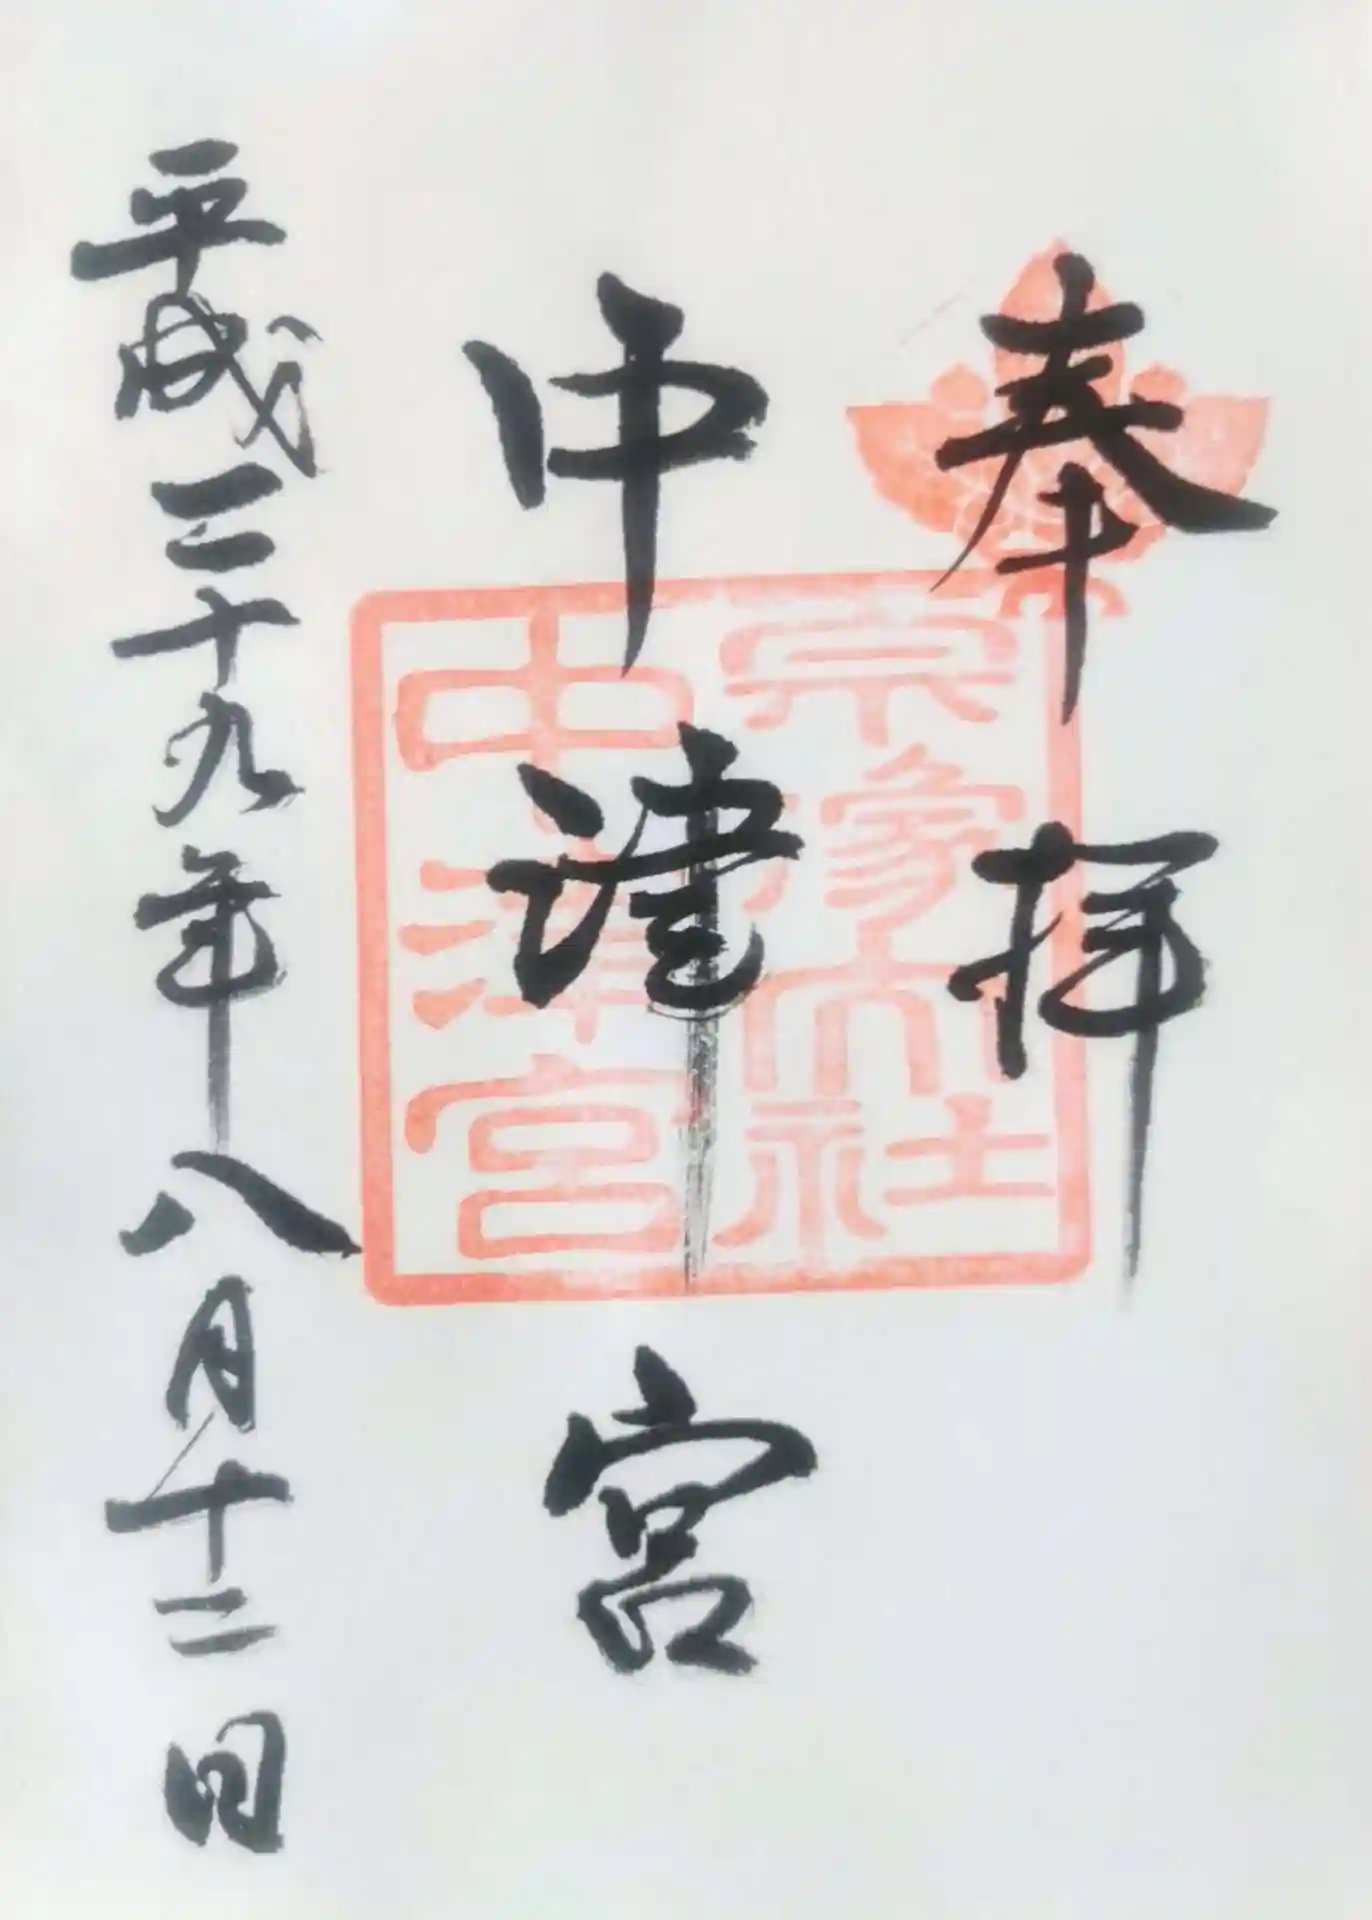 奉拝
宗像大社
中津宮
中津宮
平成二十九年八月十二日